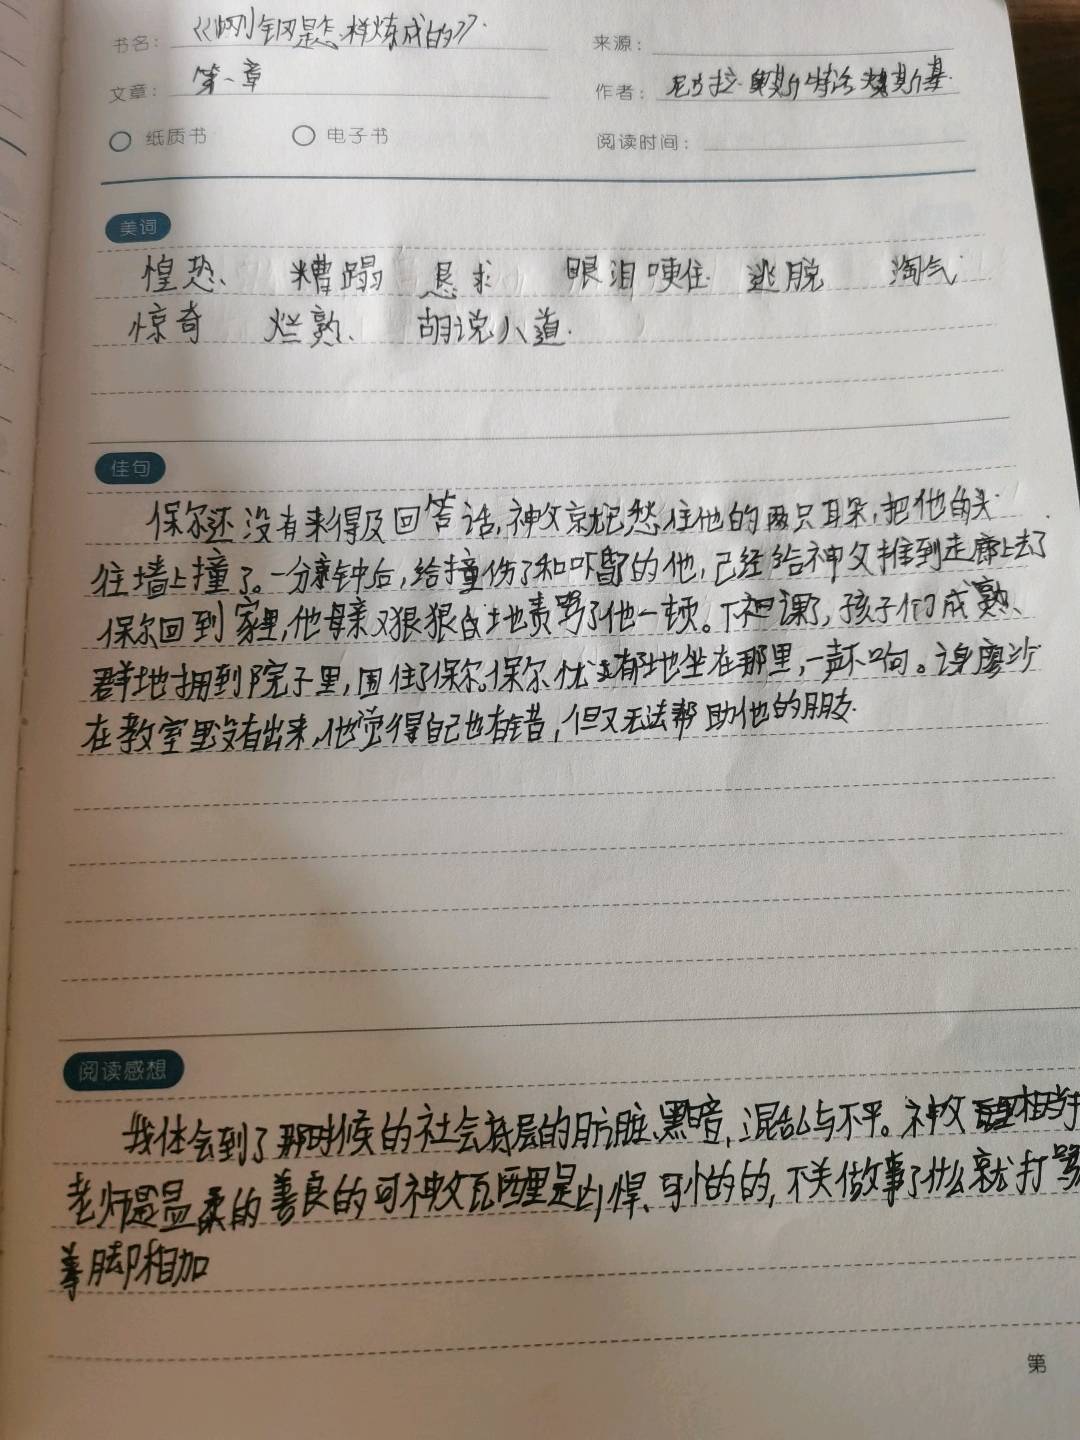 书名：《钢钢是怎样炼成的》
来源：
文章：第一章
作者：尼古拉·奥斯特洛夫斯基
纸质书 电子书 阅读时间：
美词
惶恐、 糟蹋 恳求 眼泪哽住 逃脱 淘气
惊奇 烂熟、 胡说八道.
佳句
保尔还没有来得及回答话,神父就已愁住他的两只耳朵,把他的头
往墙上撞了。一分来钟后,给撞伤了和吓昏的他,已经给神父推到走廊上去了
保尔回到家里,他母亲又狠狠的地责骂了他一顿。下课了,孩子们成熟、
群地拥到院子里,围住了保尔。保尔忧郁地坐在那里,一声不响。谢廖沙
在教室里没有出来,他觉得自己也有错,但又无法帮助他的朋友.
阅读感想
我体会到了那时候的社会底层的肮脏、黑暗,混乱与不平。神父相当于
老师温柔的善良的可神父瓦西里是凶悍、可怕的的,不关做事了什么就打骂
拳脚相加
第